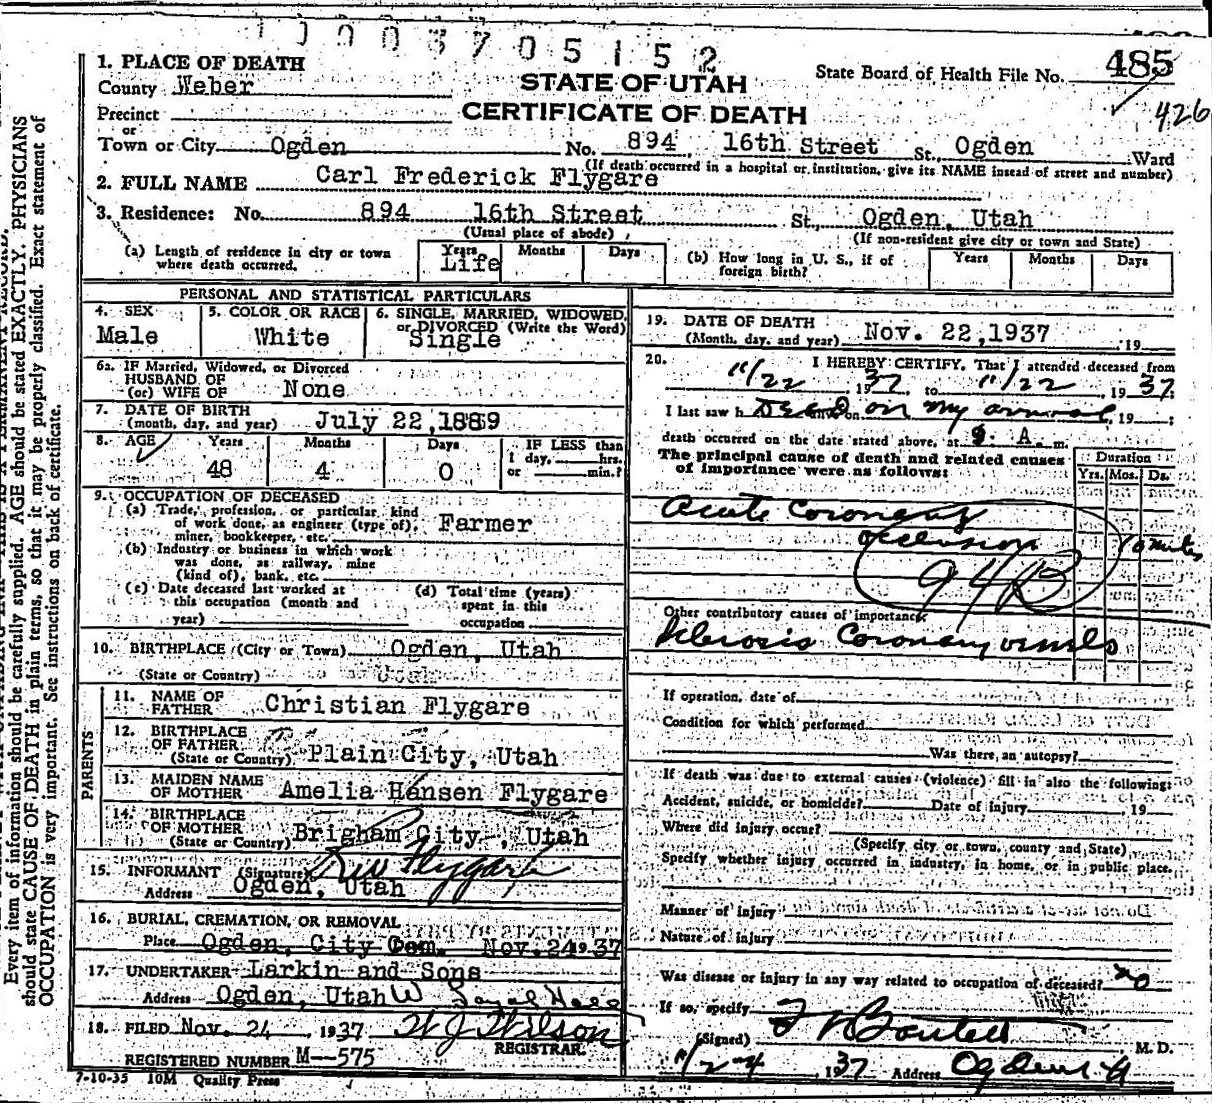 1000705152
1. PLACE OF DEATH
County Weber
STATE OF UTAH
State Board of Health File No. 485
426
Precinct
CERTIFICATE OF DEATH
or
Town or City Ogden No. 894 16th Street St., Ogden Ward
(If death occurred in a hospital or institution, give its NAME instead of street and number)
2. FULL NAME Carl Frederick Flygare
3. Residence: No. 894 16th Street St., Ogden, Utah
(Usual place of abode) (If non-resident give city or town and State)
(a) Length of residence in city or town where death occurred. Years Life Months Days
(b) How long in U. S., if of foreign birth? Years Months Days
PERSONAL AND STATISTICAL PARTICULARS
4. SEX Male
5. COLOR OR RACE White
6. SINGLE, MARRIED, WIDOWED, or DIVORCED (Write the Word) Single
6a. IF Married, Widowed, or Divorced
HUSBAND OF
(or) WIFE OF None
7. DATE OF BIRTH
(month, day, and year) July 22, 1889
8. AGE Years 48 Months 4 Days 0 IF LESS than 1 day, hrs. or min.?
9. OCCUPATION OF DECEASED
(a) Trade, profession, or particular kind
of work done, as engineer (type of), Farmer
miner, bookkeeper, etc.
(b) Industry or business in which work
was done, as railway, mine
(kind of), bank, etc.
(c) Date deceased last worked at
this occupation (month and
year)
(d) Total time (years)
spent in this
occupation
10. BIRTHPLACE (City or Town) Ogden, Utah
(State or Country)
PARENTS
11. NAME OF
FATHER Christian Flygare
12. BIRTHPLACE
OF FATHER
(State or Country) Plain City, Utah
13. MAIDEN NAME
OF MOTHER Amelia Hansen Flygare
14. BIRTHPLACE
OF MOTHER
(State or Country) Brigham City, Utah
15. INFORMANT (Signature) Flygare
Address Ogden, Utah
16. BURIAL, CREMATION, OR REMOVAL
Place Ogden, City Cem. Nov. 24 1937
17. UNDERTAKER Larkin and Sons
Address Ogden, Utah
18. FILED Nov. 24 1937 W J Wilson
REGISTRAR.
REGISTERED NUMBER M--575
7-10-35 10M Quality Press
19. DATE OF DEATH
(Month, day, and year) Nov. 22, 1937 19
20. I HEREBY CERTIFY, That I attended deceased from
11/22 1937 to 11/22, 1937;
I last saw h Dead on my arrival, 19 ;
death occurred on the date stated above, at 9. A. m.
The principal cause of death and related causes
of importance were as follows:
Duration
Yrs. Mos. Ds.
Acute Coronary
occlusion 10 minutes
94B
Other contributory causes of importance:
Sclerosis Coronary vessels
If operation, date of
Condition for which performed
Was there an autopsy?
If death was due to external causes (violence) fill in also the following:
Accident, suicide, or homicide? Date of injury , 19
Where did injury occur?
(Specify city or town, county and State)
Specify whether injury occurred in industry, in home, or in public place.
Manner of injury
Nature of injury
Was disease or injury in any way related to occupation of deceased? no
If so, specify
(Signed) M. D.
11/24 1937 Address Ogden
Every item of information should be carefully supplied. AGE should be stated EXACTLY. PHYSICIANS
should state CAUSE OF DEATH in plain terms, so that it may be properly classified. Exact statement of
OCCUPATION is very important. See instructions on back of certificate.